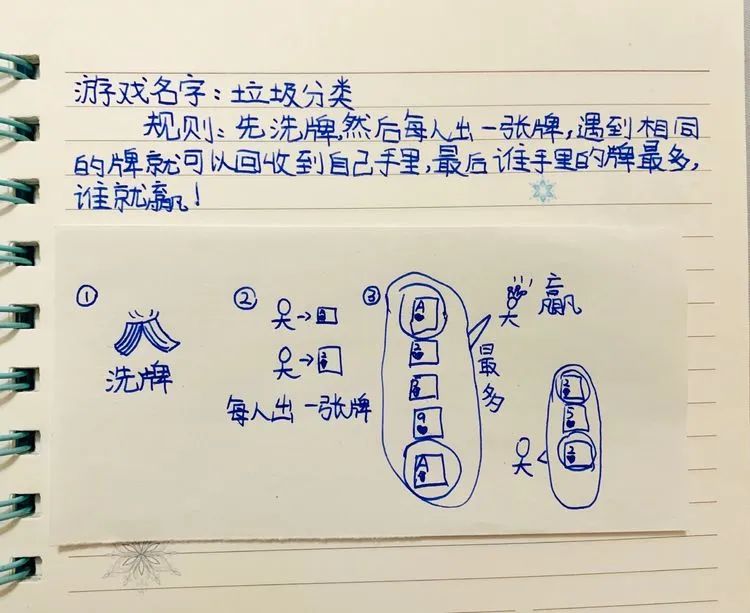 游戏名字：垃圾分类
规则：先洗牌,然后每人出一张牌,遇到相同
的牌就可以回收到自己手里,最后谁手里的牌最多,
谁就赢！
①
洗牌
②
每人出一张牌
③
A
9
A
最多
赢
2
5
2